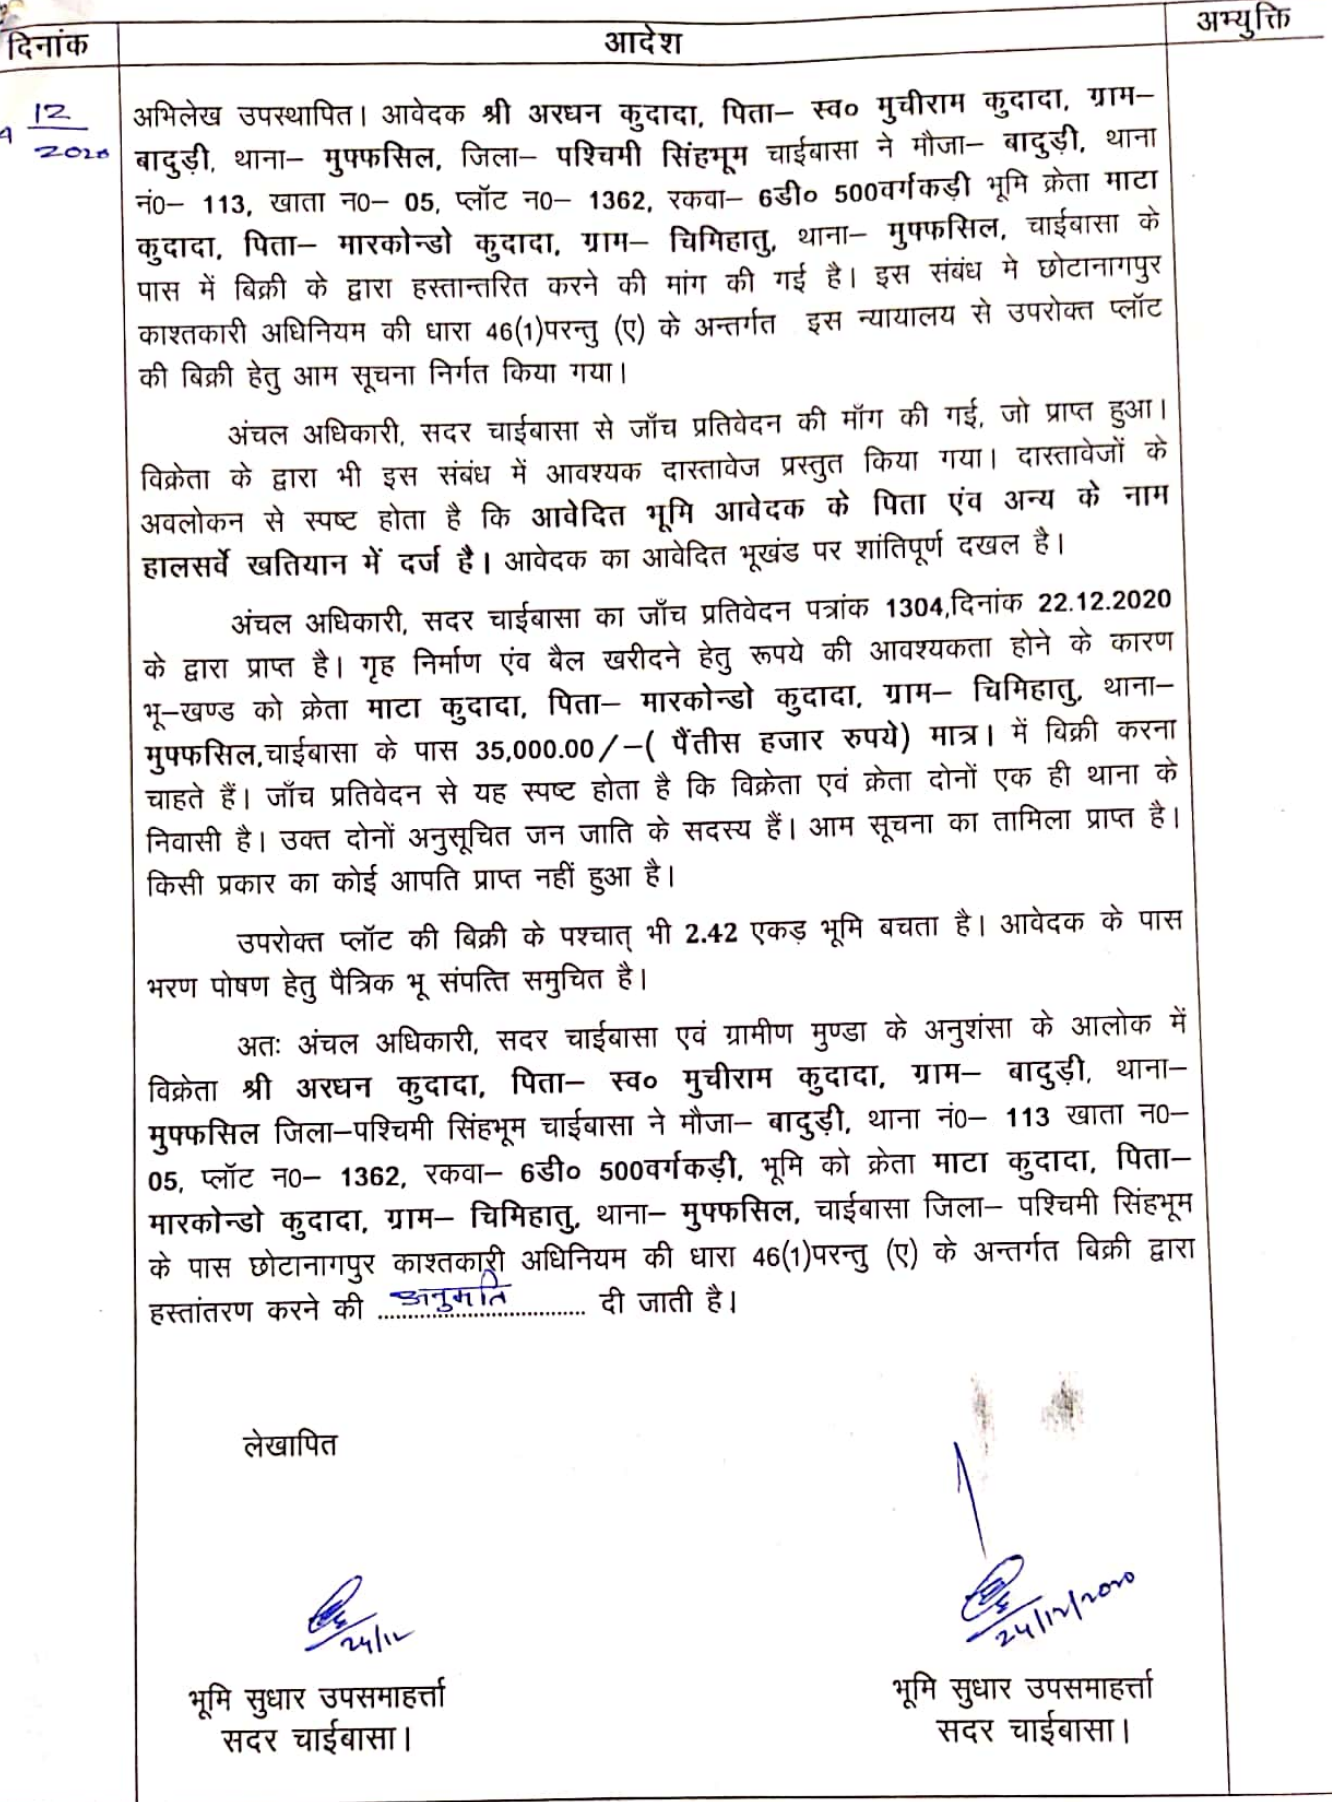 दिनांक
आदेश
अभ्युक्ति
12
2020
अभिलेख उपस्थापित। आवेदक श्री अरधन कुदादा, पिता– स्व० मुचीराम कुदादा, ग्राम–
बादुड़ी, थाना– मुफ्फसिल, जिला– पश्चिमी सिंहभूम चाईबासा ने मौजा– बादुड़ी, थाना
नं0– 113, खाता न0– 05, प्लॉट न0– 1362, रकवा– 6डी० 500वर्गकड़ी भूमि क्रेता माटा
कुदादा, पिता– मारकोन्डो कुदादा, ग्राम– चिमिहातु, थाना– मुफ्फसिल, चाईबासा के
पास में बिक्री के द्वारा हस्तान्तरित करने की मांग की गई है। इस संबंध मे छोटानागपुर
काश्तकारी अधिनियम की धारा 46(1)परन्तु (ए) के अन्तर्गत इस न्यायालय से उपरोक्त प्लॉट
की बिक्री हेतु आम सूचना निर्गत किया गया।
अंचल अधिकारी, सदर चाईबासा से जाँच प्रतिवेदन की माँग की गई, जो प्राप्त हुआ।
विक्रेता के द्वारा भी इस संबंध में आवश्यक दास्तावेज प्रस्तुत किया गया। दास्तावेजों के
अवलोकन से स्पष्ट होता है कि आवेदित भूमि आवेदक के पिता एंव अन्य के नाम
हालसर्वे खतियान में दर्ज है। आवेदक का आवेदित भूखंड पर शांतिपूर्ण दखल है।
अंचल अधिकारी, सदर चाईबासा का जाँच प्रतिवेदन पत्रांक 1304,दिनांक 22.12.2020
के द्वारा प्राप्त है। गृह निर्माण एंव बैल खरीदने हेतु रूपये की आवश्यकता होने के कारण
भू–खण्ड को क्रेता माटा कुदादा, पिता– मारकोन्डो कुदादा, ग्राम– चिमिहातु, थाना–
मुफ्फसिल,चाईबासा के पास 35,000.00/–( पैंतीस हजार रुपये) मात्र। में बिक्री करना
चाहते हैं। जाँच प्रतिवेदन से यह स्पष्ट होता है कि विक्रेता एवं क्रेता दोनों एक ही थाना के
निवासी है। उक्त दोनों अनुसूचित जन जाति के सदस्य हैं। आम सूचना का तामिला प्राप्त है।
किसी प्रकार का कोई आपति प्राप्त नहीं हुआ है।
उपरोक्त प्लॉट की बिक्री के पश्चात् भी 2.42 एकड़ भूमि बचता है। आवेदक के पास
भरण पोषण हेतु पैत्रिक भू संपत्ति समुचित है।
अतः अंचल अधिकारी, सदर चाईबासा एवं ग्रामीण मुण्डा के अनुशंसा के आलोक में
विक्रेता श्री अरधन कुदादा, पिता– स्व० मुचीराम कुदादा, ग्राम– बादुड़ी, थाना–
मुफ्फसिल जिला–पश्चिमी सिंहभूम चाईबासा ने मौजा– बादुड़ी, थाना नं0– 113 खाता न0–
05, प्लॉट न0– 1362, रकवा– 6डी० 500वर्गकड़ी, भूमि को क्रेता माटा कुदादा, पिता–
मारकोन्डो कुदादा, ग्राम– चिमिहातु, थाना– मुफ्फसिल, चाईबासा जिला– पश्चिमी सिंहभूम
के पास छोटानागपुर काश्तकारी अधिनियम की धारा 46(1)परन्तु (ए) के अन्तर्गत बिक्री द्वारा
हस्तांतरण करने की अनुमति दी जाती है।
लेखापित
24/12
24/12/2020
भूमि सुधार उपसमाहर्त्ता
सदर चाईबासा।
भूमि सुधार उपसमाहर्त्ता
सदर चाईबासा।